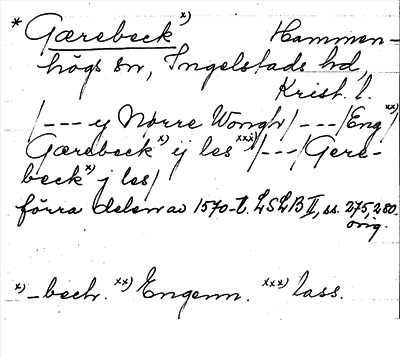 * Gærebeck x) Hammen-
högs sn, Ingelstads hd,
Krist. l.
/--- y Nørre Wongh/---/Eng xx)/
Gærebeck x) ij les xxx)/---/Gere-
beck x) j les/
förra delen av 1570-t. LSLB II, ss. 275, 280.
orig.
x) -bech. xx) Engenn. xxx) lass.